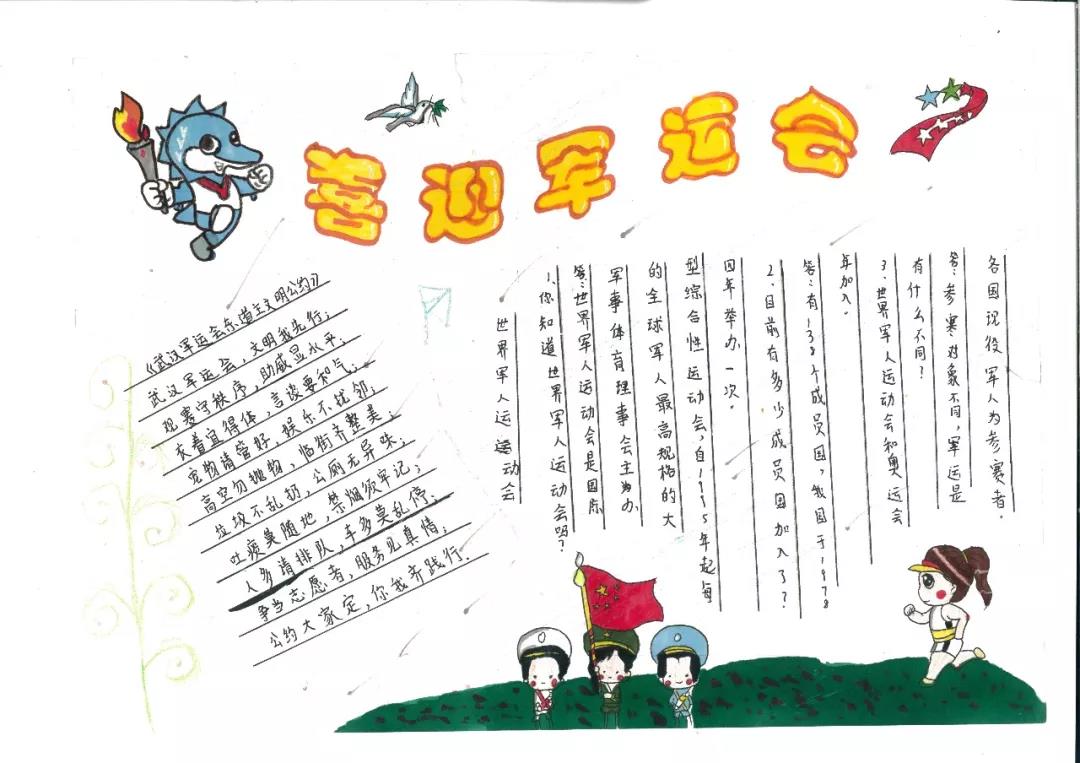 喜迎军运会
《武汉军运会东道主文明公约》
武汉军运会，文明我先行；
观赛守秩序，助威显水平；
衣着宜得体，言谈要和气；
宠物请管好，娱乐不扰邻；
高空勿抛物，临街齐整美；
垃圾不乱扔，公厕无异味；
吐痰莫随地，禁烟须牢记；
人多请排队，车多莫乱停；
争当志愿者，服务见真情；
公约大家定，你我齐践行．
世界军人运运动会
1、你知道世界军人运动会吗？
答：世界军人运动会是国际
军事体育理事会主为办
的全球军人最高规格的大
型综合性运动会，自1995年起每
四年举办一次。
2、目前有多少成员国加入了？
答：有138个成员国，我国于1978
年加入。
3、世界军人运动会和奥运会
有什么不同？
答：参赛对象不同，军运是
各国现役军人为参赛者。